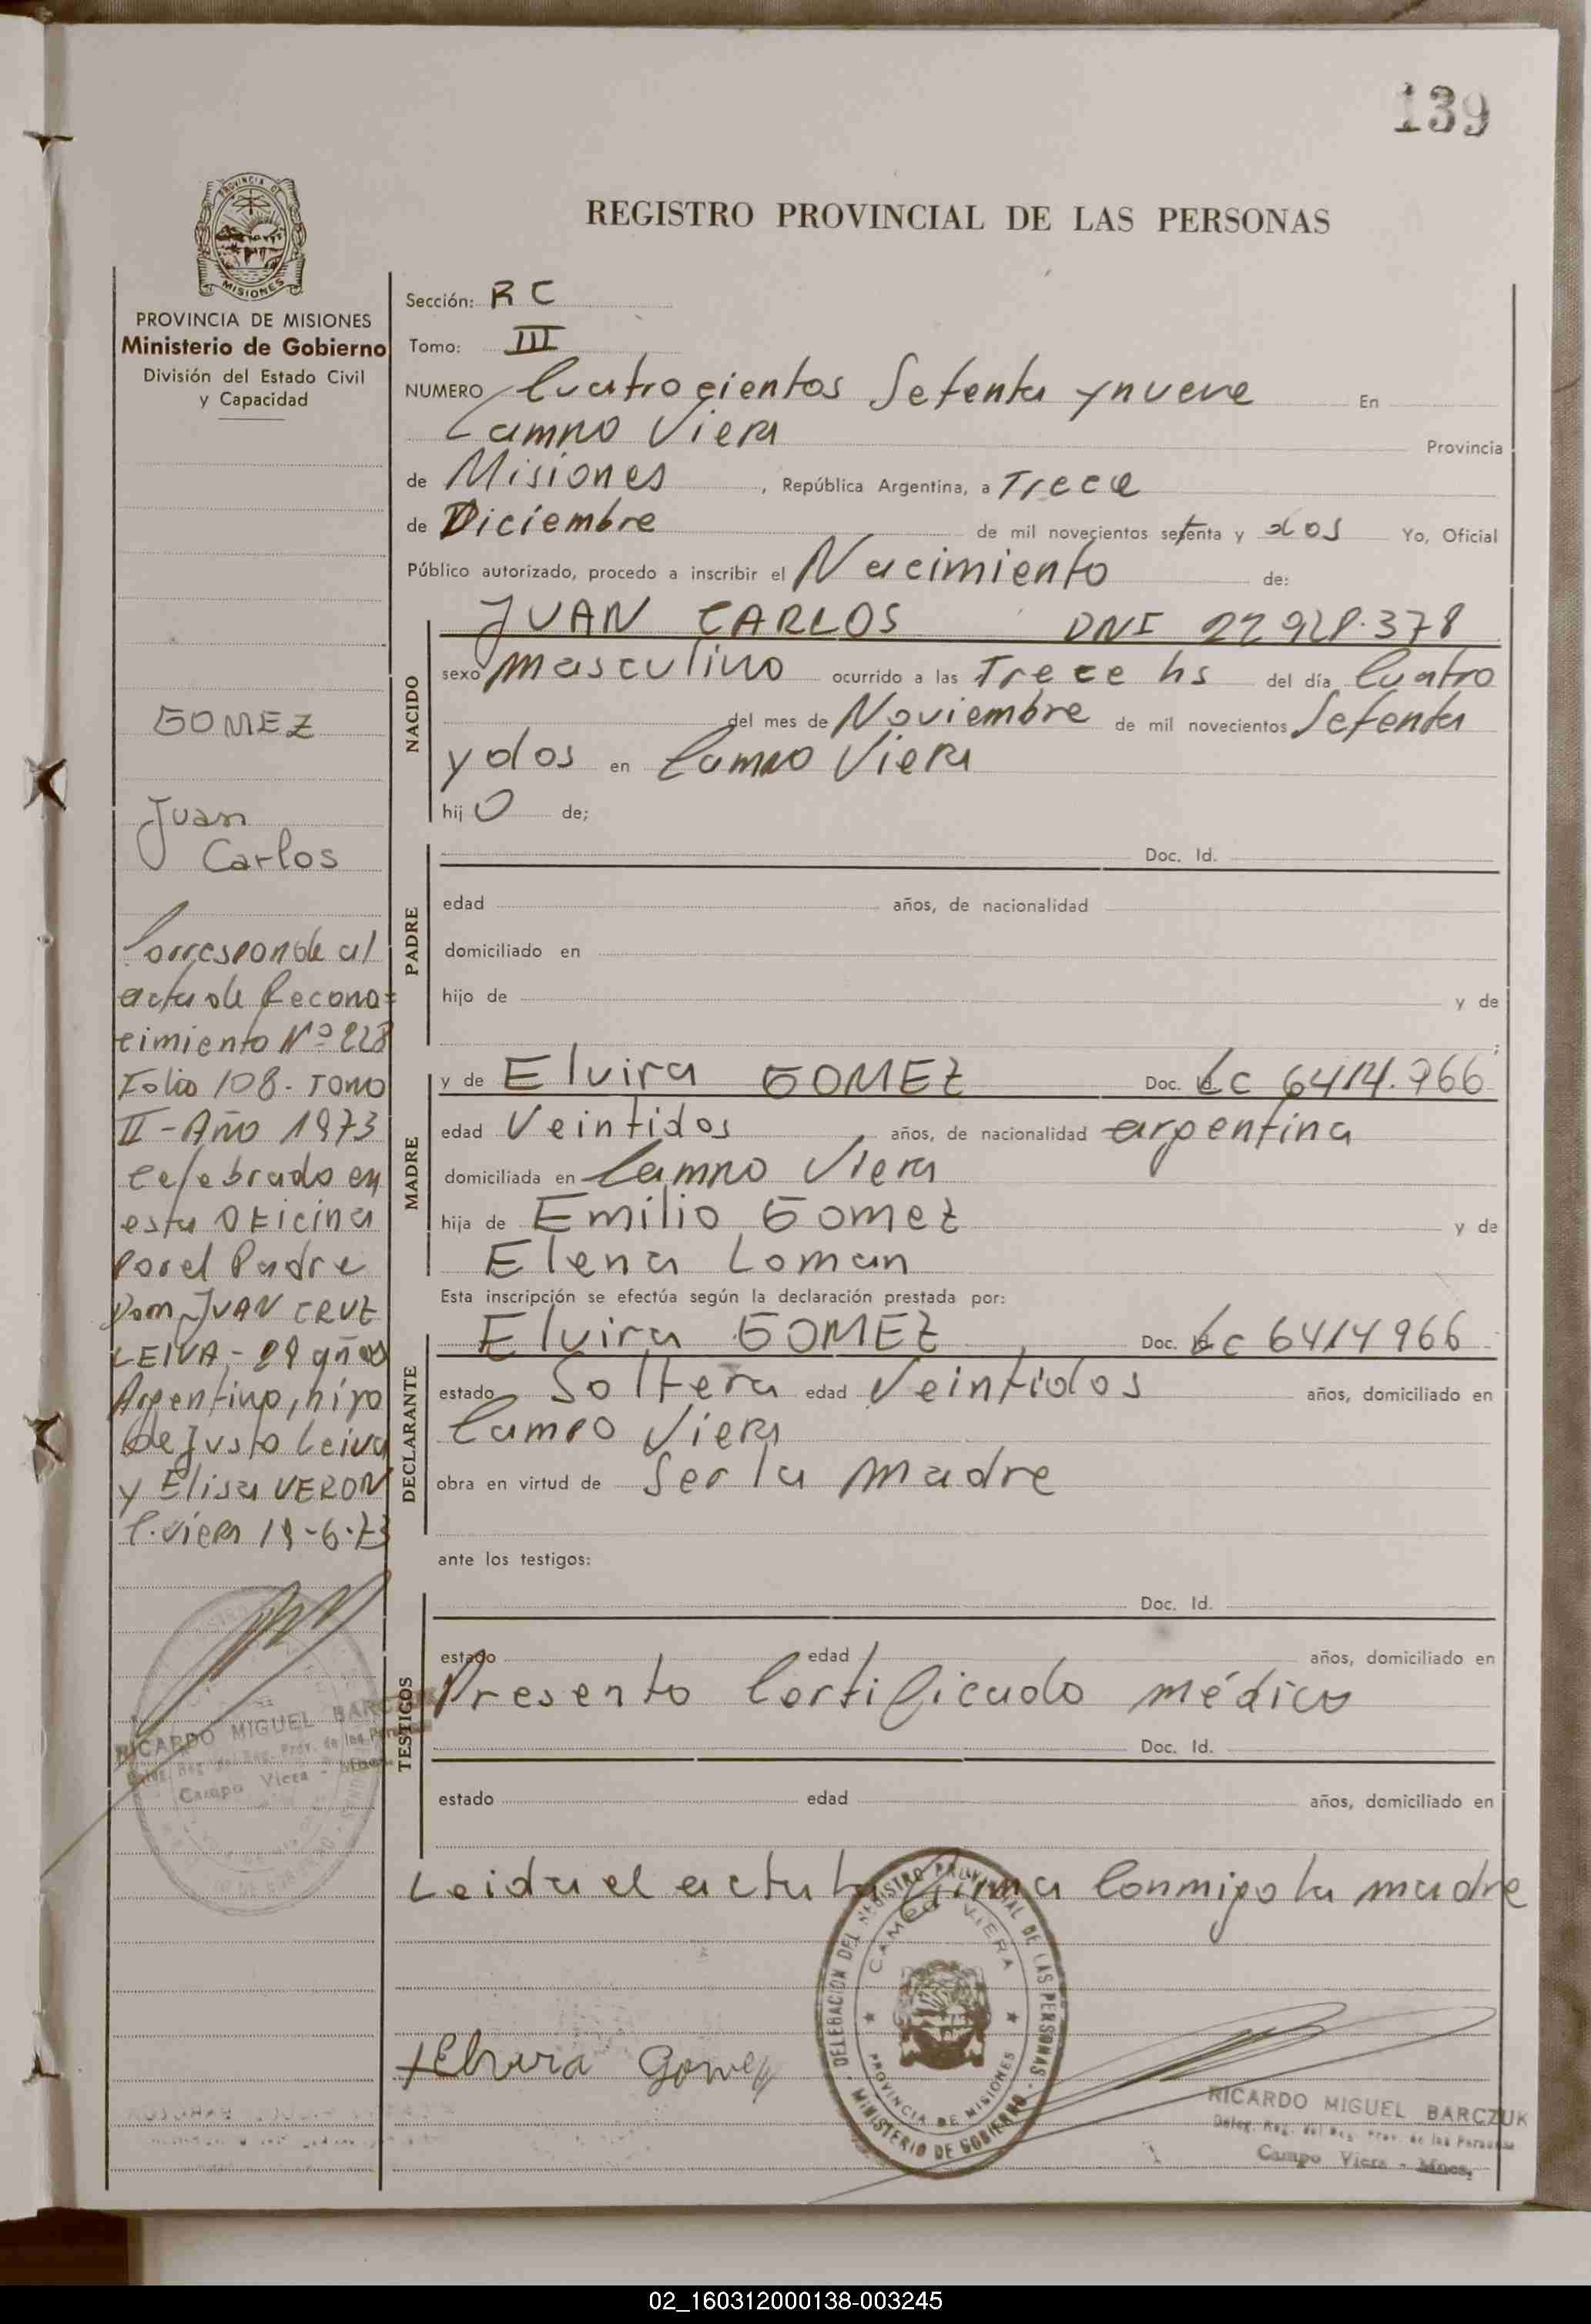 139
PROVINCIA DE
MISIONES
PROVINCIA DE MISIONES
Ministerio de Gobierno
División del Estado Civil
y Capacidad
GOMEZ
Juan
Carlos
Corresponde al
acta de Recono=
cimiento Nº 228
Folio 108. TOMO
II - Año 1973
celebrado en
esta OFICINA
Por el Padre
Dom JUAN CRUZ
LEIVA - 29 años
Argentino, hijo
de Justo Leiva
y Elisa VERON
C. Viera 19-6-73
RICARDO MIGUEL BARCZUK
Deleg. Reg. del Reg. Prov. de las Personas
Campo Viera - Mnes.
REGISTRO PROVINCIAL DE LAS PERSONAS
Sección: R C
Tomo: III
NUMERO Cuatrocientos Setenta y nueve En
Campo Viera Provincia
de Misiones, República Argentina, a Trece
de Diciembre de mil novecientos setenta y dos Yo, Oficial
Público autorizado, procedo a inscribir el Nacimiento de:
NACIDO
JUAN CARLOS DNI 22928.378
sexo masculino ocurrido a las Trece hs del día Cuatro
del mes de Noviembre de mil novecientos Setenta
y dos en Campo Viera
hij o de;
PADRE
Doc. Id.
edad años, de nacionalidad
domiciliado en
hijo de y de
MADRE
y de Elvira GOMEZ Doc. LC 6414.966
edad Veintidos años, de nacionalidad argentina
domiciliada en Campo Viera
hija de Emilio Gomez y de
Elena Loman
Esta inscripción se efectúa según la declaración prestada por:
DECLARANTE
Elvira GOMEZ Doc. LC 6414966
estado Soltera edad Veintidos años, domiciliado en
Campo Viera
obra en virtud de Ser la madre
ante los testigos:
TESTIGOS
Doc. Id.
estado edad años, domiciliado en
Presento Certificado médico
Doc. Id.
estado edad años, domiciliado en
Leida el acta la firma Conmigo la madre
DELEGACION DEL REGISTRO PROVINCIAL DE LAS PERSONAS
CAMPO VIERA
PROVINCIA DE MISIONES
MINISTERIO DE GOBIERNO
Elvira Gomez
RICARDO MIGUEL BARCZUK
Deleg. Reg. del Reg. Prov. de las Personas
Campo Viera - Mnes.
02_160312000138-003245